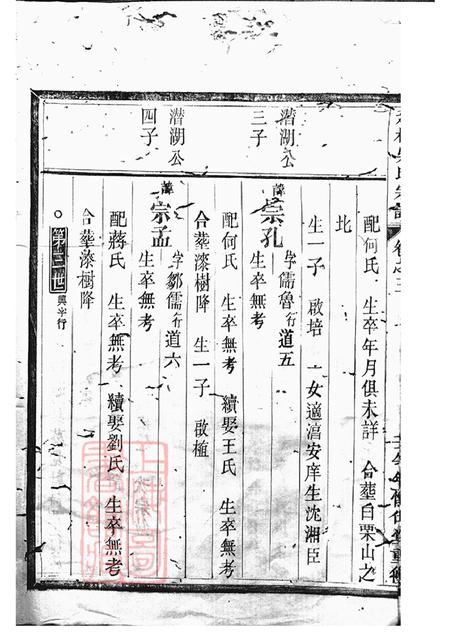 卷之三
配何氏 生卒年月俱未詳 合葬白栗山之
北
生一子 啟培 一女適瀉安庠生沈湘臣
潛湖公
三子
諱宗孔 字儒魯行道五
生卒無考
配何氏 生卒無考 續娶王氏 生卒無考
合葬漆樹隆 生一子 啟植
潛湖公
四子
諱宗孟 字鄒儒行道六
生卒無考
配蔣氏 生卒無考 續娶劉氏 生卒無考
合葬漆樹隆
○第三世 興字行